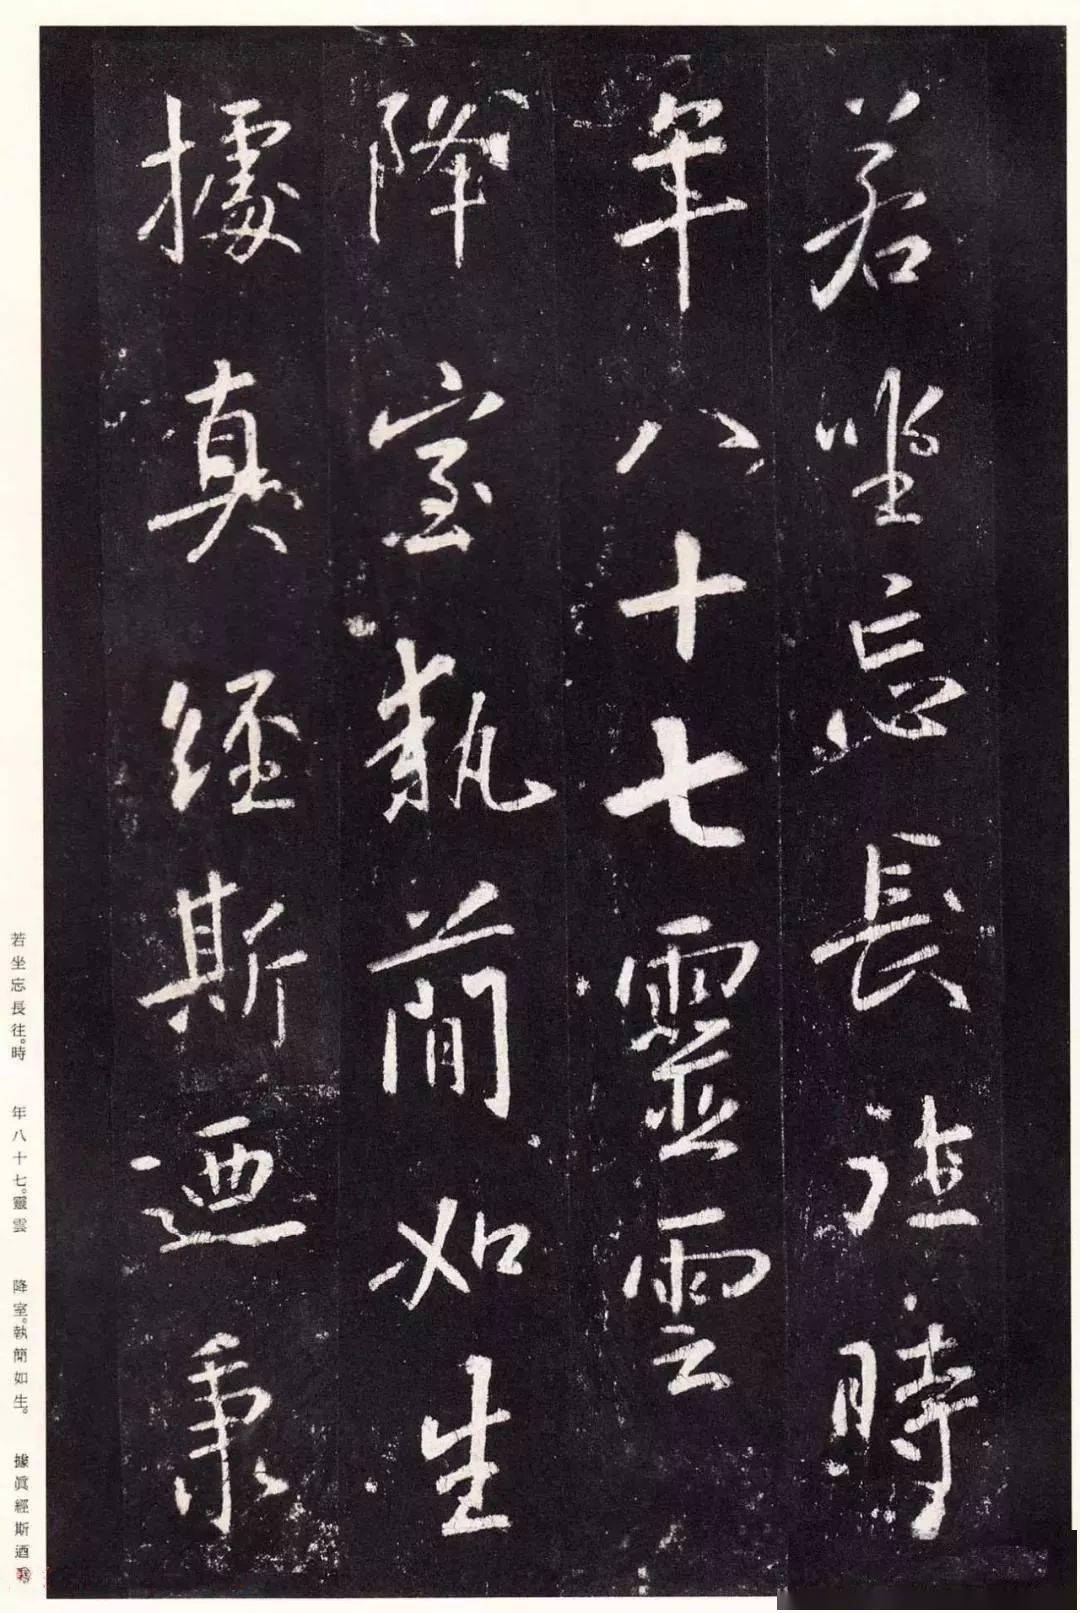 若坐忘長往時
年八十七靈雲
降室執簡如生
據真經斯迺秉
若坐忘長往。時 年八十七。靈雲 降室。執簡如生。 據眞經斯迺